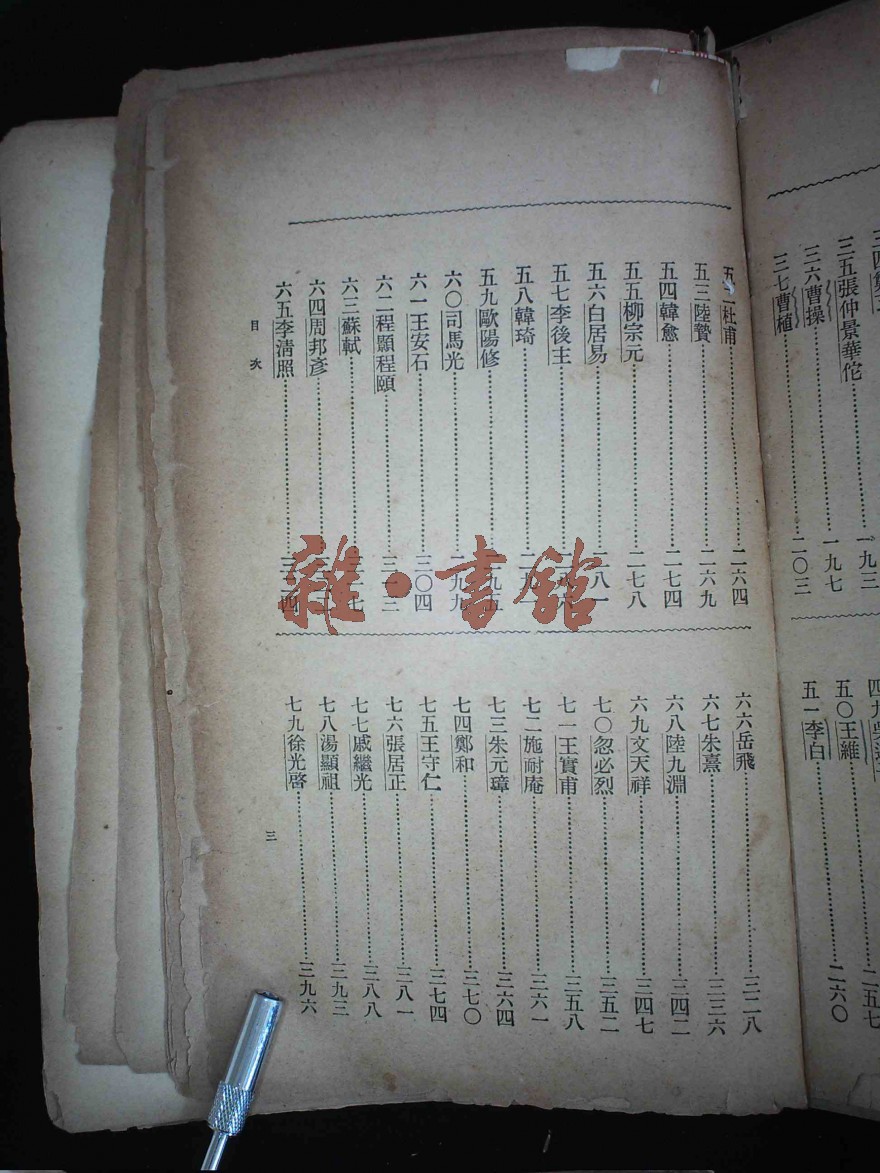 三五張仲景華佗……一九三
三六曹操……一九七
三七曹植……二〇三
五〇王維……二五七
五一李白……二六〇
五二杜甫……二六四
五三陸贄……二六九
五四韓愈……二七四
五五柳宗元……二七八
五六白居易……二八一
五七李後主……
五八韓琦……
五九歐陽修……二九五
六〇司馬光……二九九
六一王安石……三〇四
六二程顥程頤……三一三
六三蘇軾……
六四周邦彥……
六五李清照……
六六岳飛……三二八
六七朱熹……三三六
六八陸九淵……三四二
六九文天祥……三四七
七〇忽必烈……三五二
七一王實甫……三五八
七二施耐庵……三六一
七三朱元璋……三六四
七四鄭和……三七〇
七五王守仁……三七四
七六張居正……三八一
七七戚繼光……三八八
七八湯顯祖……三九三
七九徐光啓……三九六
目次
三
雜·書館